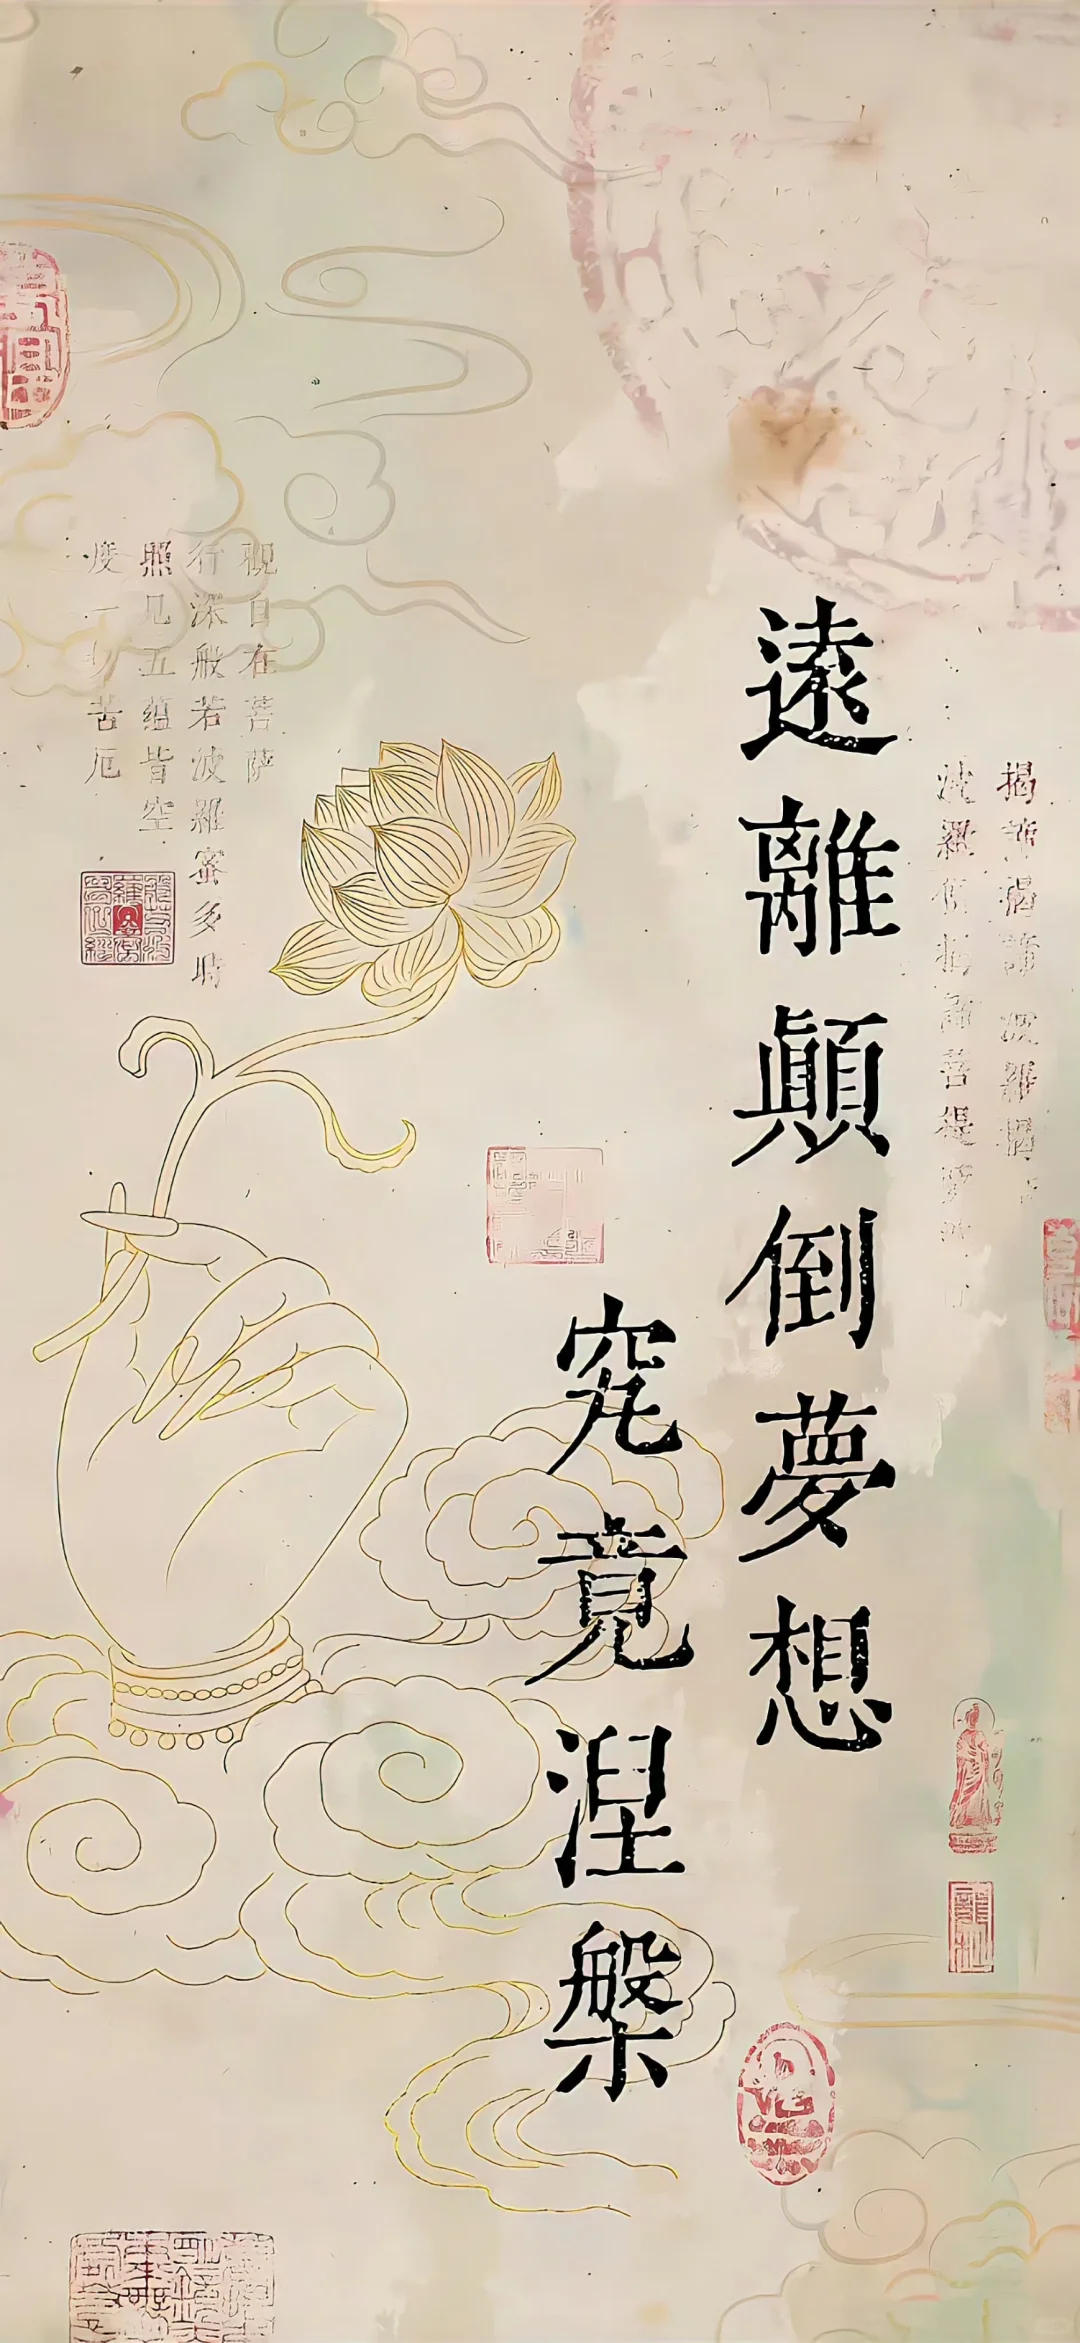 揭諦揭諦波羅揭
波羅僧揭諦菩提
遠離顛倒夢想
究竟涅槃
观自在菩萨
行深般若波羅蜜多時
照见五蕴皆空
度一切苦厄